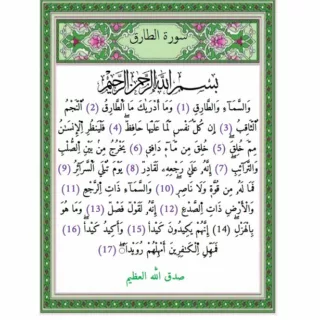 سورة الطارق
بِسْمِ اللَّهِ الرَّحْمَنِ الرَّحِيمِ
وَالسَّمَاءِ وَالطَّارِقِ (1) وَمَا أَدْرَىٰكَ مَا الطَّارِقُ (2) النَّجْمُ
الثَّاقِبُ (3) إِن كُلُّ نَفْسٍ لَّمَّا عَلَيْهَا حَافِظٌ (4) فَلْيَنظُرِ الْإِنسَٰنُ
مِمَّ خُلِقَ (5) خُلِقَ مِن مَّاءٍ دَافِقٍ (6) يَخْرُجُ مِن بَيْنِ الصُّلْبِ
وَالتَّرَائِبِ (7) إِنَّهُ عَلَىٰ رَجْعِهِ لَقَادِرٌ (8) يَوْمَ تُبْلَى السَّرَائِرُ (9)
فَمَا لَهُ مِن قُوَّةٍ وَلَا نَاصِرٍ (10) وَالسَّمَاءِ ذَاتِ الرَّجْعِ (11)
وَالْأَرْضِ ذَاتِ الصَّدْعِ (12) إِنَّهُ لَقَوْلٌ فَصْلٌ (13) وَمَا هُوَ
بِالْهَزْلِ (14) إِنَّهُمْ يَكِيدُونَ كَيْدًا (15) وَأَكِيدُ كَيْدًا (16)
فَمَهِّلِ الْكَٰفِرِينَ أَمْهِلْهُمْ رُوَيْدًا (17)
صدق الله العظيم